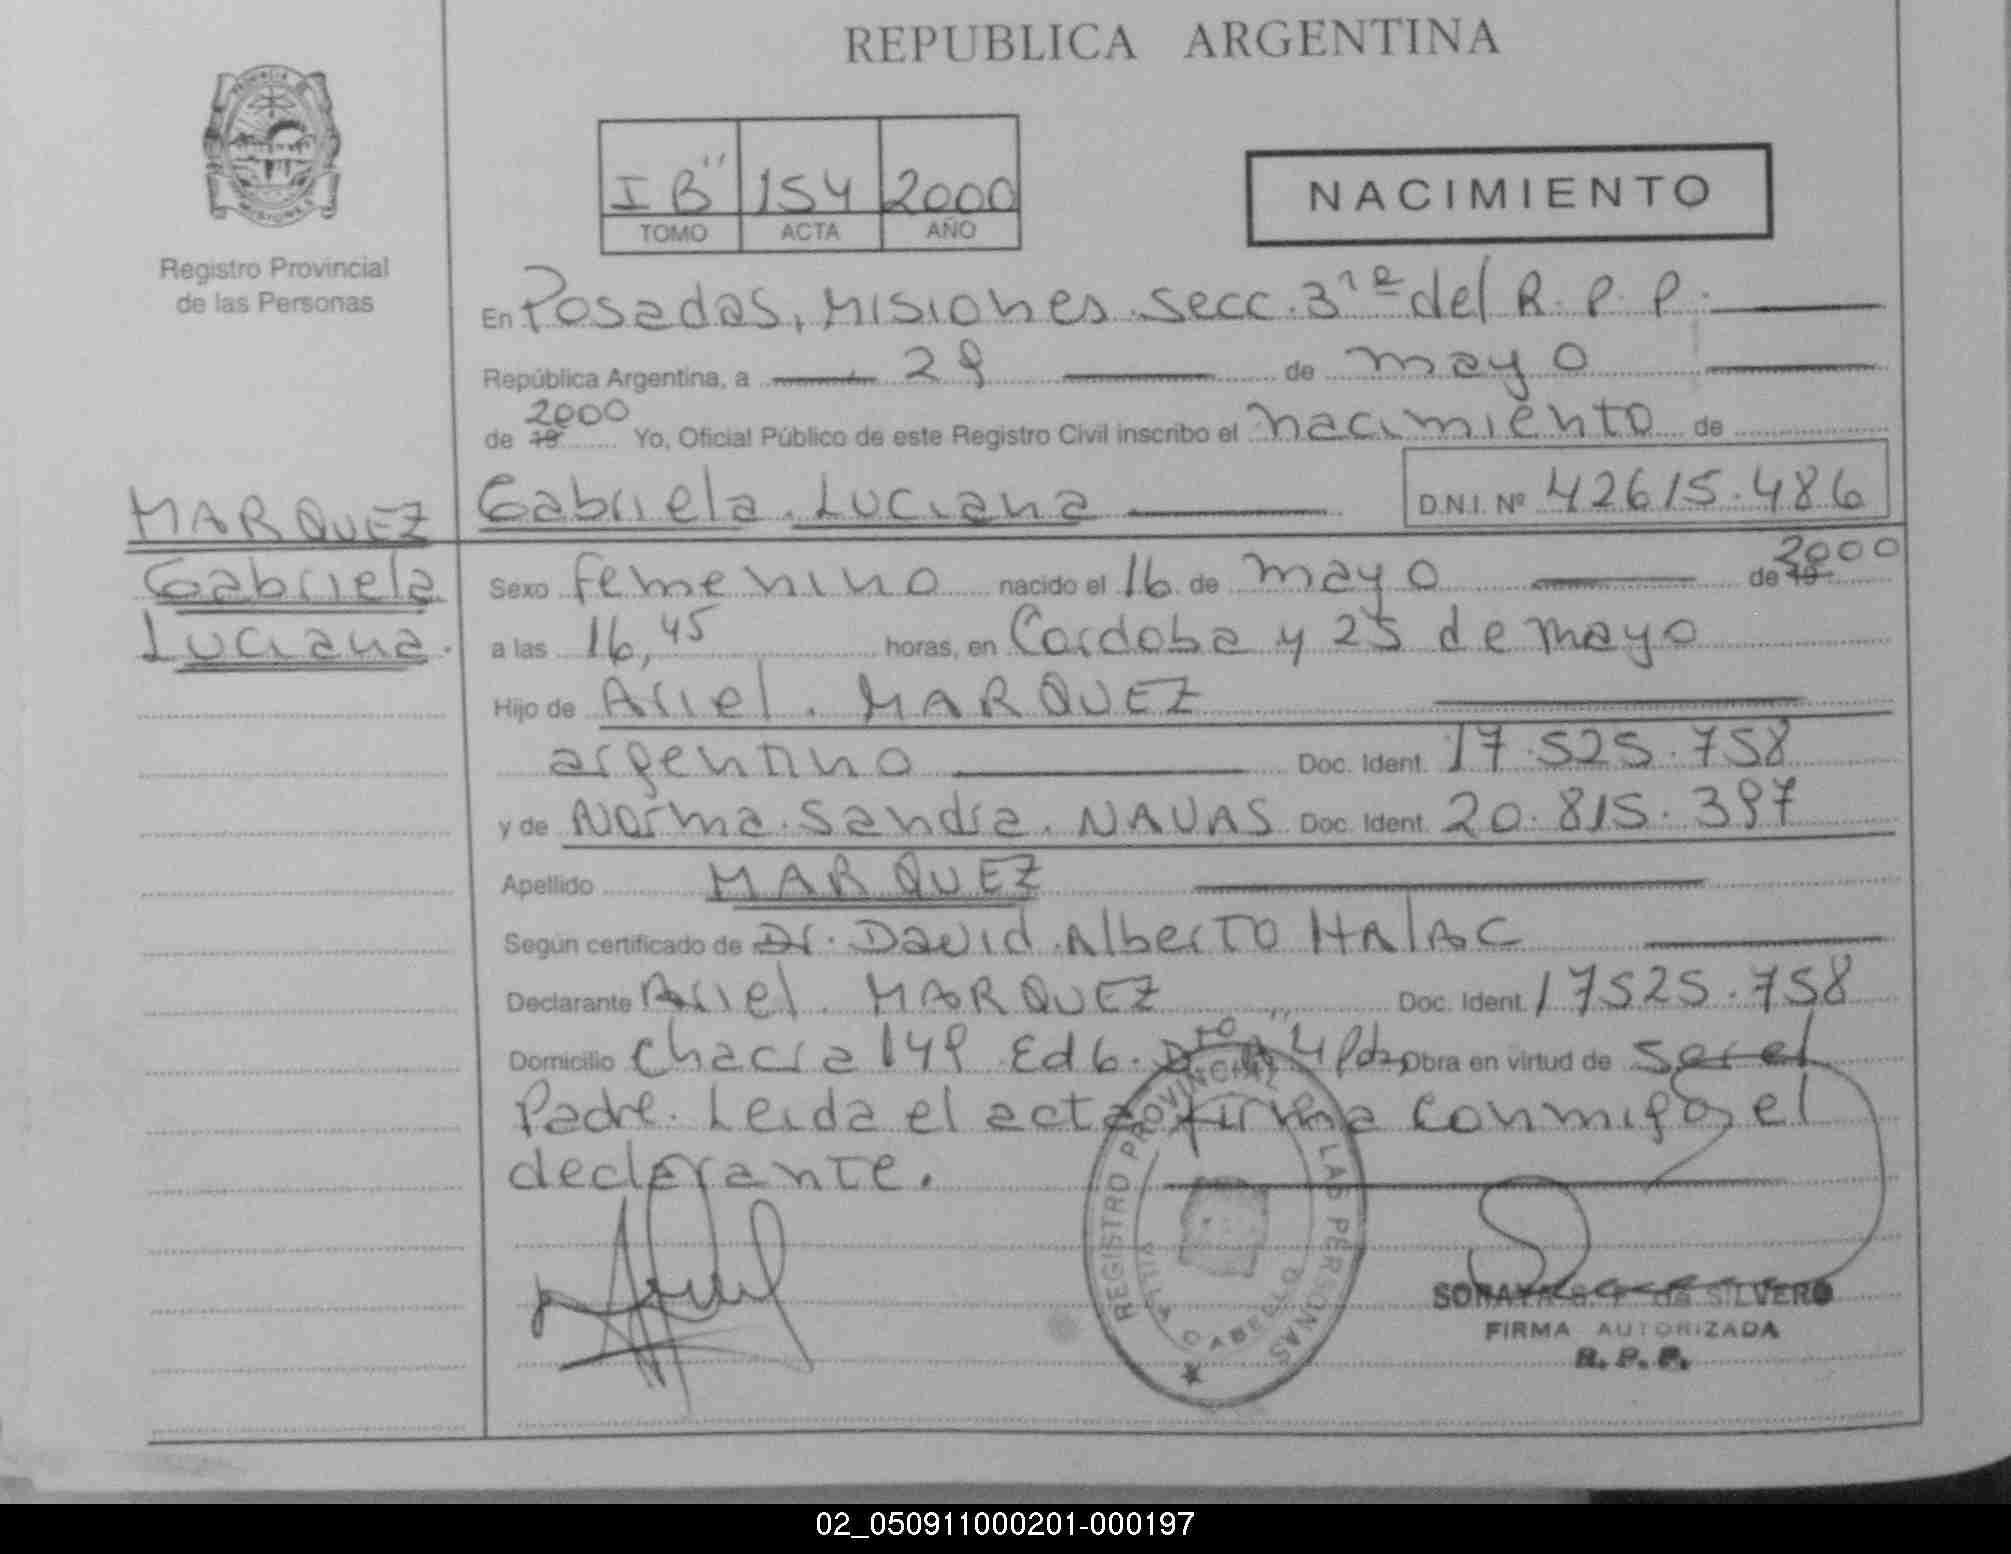 REPUBLICA ARGENTINA
PROVINCIA
MISIONES
Registro Provincial
de las Personas
I B" 154 2000
TOMO ACTA AÑO
NACIMIENTO
En Posadas, Misiones. Secc. 3ra del R. P. P.
República Argentina, a 29 de mayo
de 19 2000 Yo, Oficial Público de este Registro Civil inscribo el nacimiento de
Gabriela. Luciana D.N.I. Nº 42615.486
MARQUEZ
Gabriela
Luciana.
Sexo femenino nacido el 16 de mayo de 19 2000
a las 16,45 horas, en Cordoba y 25 de mayo
Hijo de Ariel. MARQUEZ
argentino Doc. Ident. 17.525.758
y de Norma. Sandra. NAVAS Doc. Ident. 20.815.397
Apellido MARQUEZ
Según certificado de Dr. David Alberto HALAC
Declarante Ariel. MARQUEZ Doc. Ident. 17525.758
Domicilio Chacra 149 Ed 6. Obra en virtud de ser el
Padre. Leida el acta firma conmigo, el
declarante.
REGISTRO PROVINCIAL LAS PERSONAS
VILLA CABELLO
SORAYA de SILVERO
FIRMA AUTORIZADA
R. P. P.
02_050911000201-000197